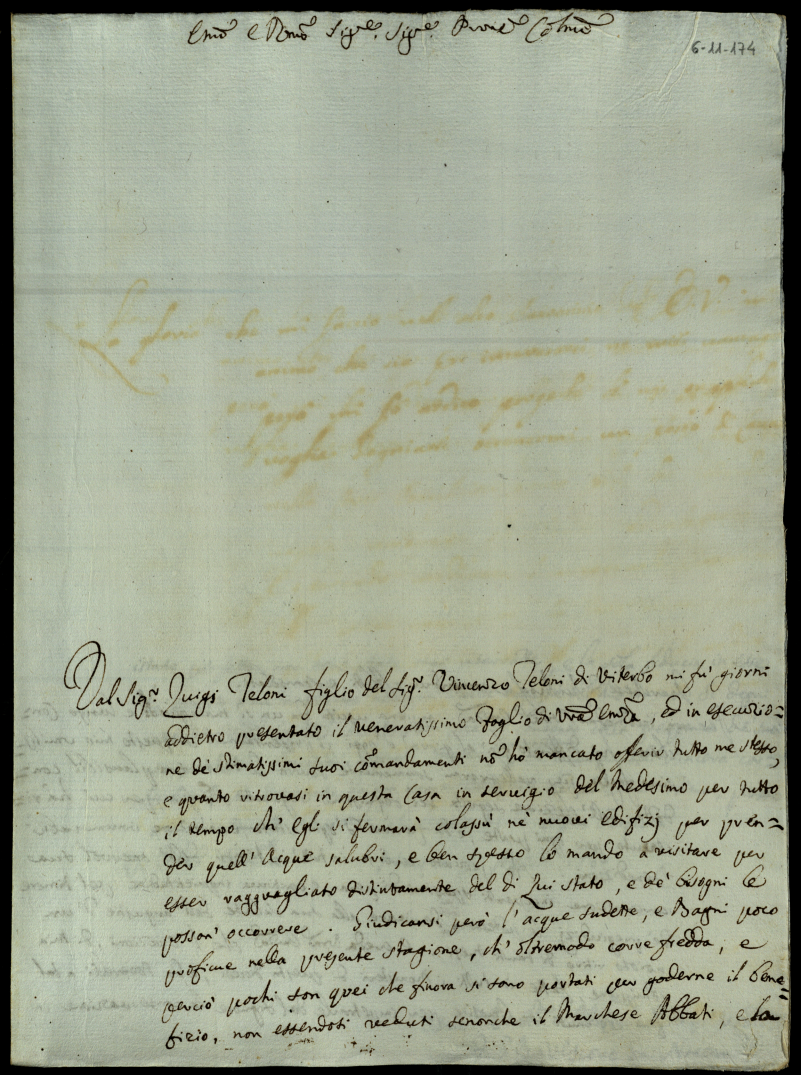 Emo e Rmo Sigre. Sigre Prone Colmo
6-11-174
Dal Sigr. Luigi Teloni figlio del Sigr. Vincenzo Teloni di Viterbo mi fù giorni
addietro presentato il veneratissimo Foglio di Vra Emza, ed in esecuzio=
ne de' stimatissimi suoi comandamenti no hò mancato offerir tutto me stesso,
e quanto ritrovasi in questa Casa in servigio del Medesimo per tutto
il tempo ch' egli si fermarà colassù ne' nuovi edifizj per pren=
der quell' Acque salubri, e ben spesso lo mando à visitare per
esser ragguagliato distintamente del di Lui stato, e de' bisogni le
posson' occorrere. Giudicansi però l'acque sudette, e Bagni poco
proficue nella presente stagione, ch' oltremodo corre fredda, e
perciò pochi son quei che finora si sono portati per goderne il bene=
fizio, non essendosi veduti senonche il Marchese Abbati, e la